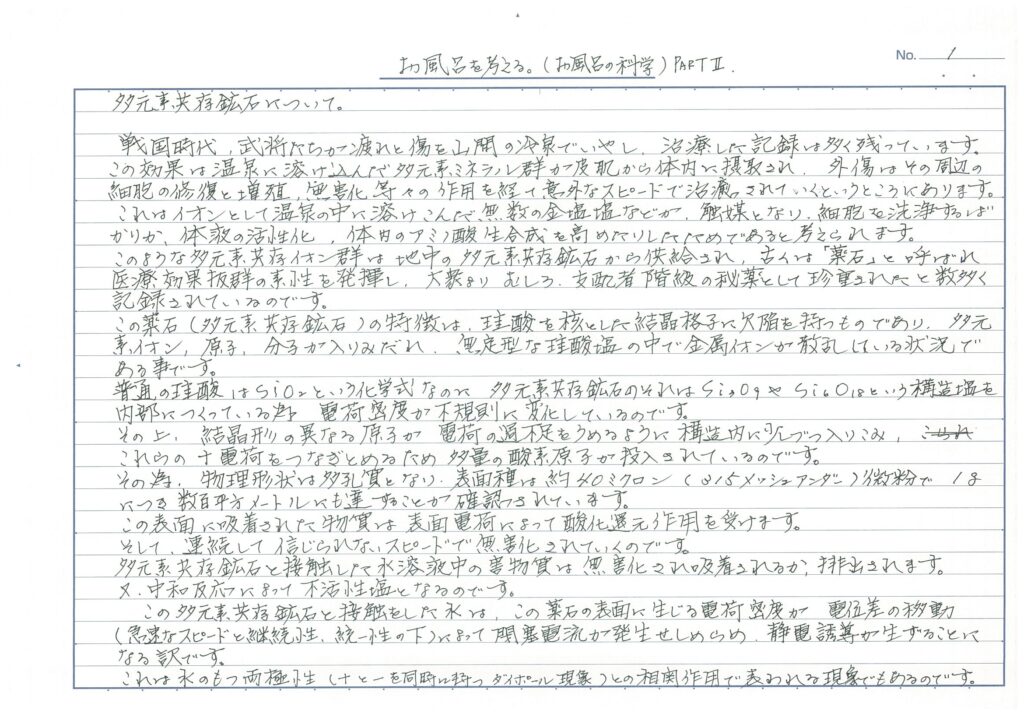 お風呂を考える。(お風呂の科学) PART II.
No. 1
多元素共存鉱石について。
戦国時代、武将たちが疲れと傷を山間の冷泉でいやし、治療した記録は多く残っています。
この効果は温泉に溶け込んだ多元素ミネラル群が皮肌から体内に摂取され、外傷はその周辺の
細胞の修復と増殖、無害化等々の作用を経て意外なスピードで治癒されていくというところにあります。
これはイオンとして温泉の中に溶けこんだ無数の金塩塩などが、触媒となり、細胞を洗浄するば
かりか、体液の活性化、体内のアミノ酸生合成を高めたりしたためであると考えられます。
このような多元素共存イオン群は地中の多元素共存鉱石から供給され、古くは「薬石」と呼ばれ
医療効果抜群の素性を発揮し、大衆よりむしろ、支配者階級の秘薬として珍重されたと数多く
記録されているのです。
この薬石(多元素共存鉱石)の特徴は、珪酸を核とした結晶格子に欠陥を持つものであり、多元
素イオン、原子、分子が入りみだれ、無定型な珪酸塩の中で金属イオンが散乱している状況で
ある事です。
普通の珪酸はSiO2という化学式なのに多元素共存鉱石のそれはSi3O9やSi6O18という構造塩を
内部につくっている為、電荷密度が不規則に変化しているのです。
その上、結晶形の異なる原子が電荷の過不足をうめるように構造内に少しづつ入りこみ、
これらの+電荷をつなぎとめるため多量の酸素原子が投入されているのです。
その為、物理形状は多孔質となり、表面積は約40ミクロン(315メッシュアンダー)微粉で1g
につき数百平方メートルにも達することが確認されています。
この表面に吸着された物質は表面電荷によって酸化還元作用を受けます。
そして、連続して信じられないスピードで無害化されていくのです。
多元素共存鉱石と接触した水溶液中の害物質は無害化され吸着されるか、排出されます。
又、中和反応によって不活性塩となるのです。
この多元素共存鉱石と接触をした水は、この薬石の表面に生じる電荷密度が電位差の移動
(急速なスピードと継続性、統一性の下)によって閉塞電流が発生せしめられ、静電誘導が生ずることに
なる訳です。
これは水のもつ両極性(+と-を同時に持つダイポール現象)との相関作用で表われる現象でもあるのです。